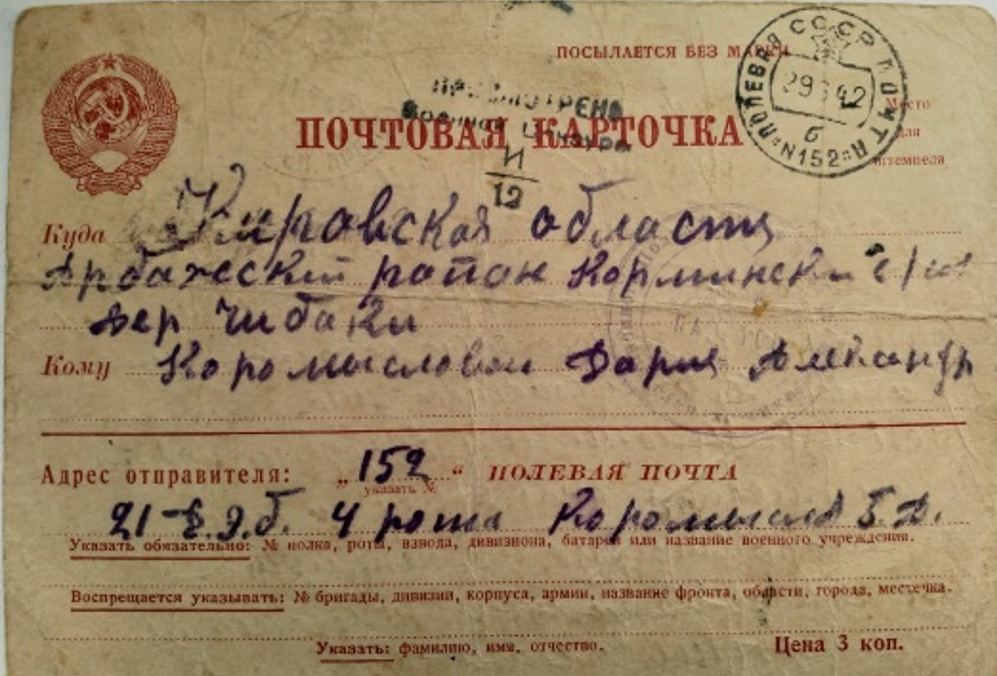 ПОСЫЛАЕТСЯ БЕЗ МАРКИ
ПРОСМОТРЕНО
Военной Цензурой
12
ПОЧТОВАЯ КАРТОЧКА
СССР ПОЛЕВАЯ ПОЧТА
29 42
б
N152
Место
для
штемпеля
Куда Кировская область
Арбажский район Кормински с/сов
дер Чибаки
Кому Коромысловой Дария Александр
Адрес отправителя: „152“ ПОЛЕВАЯ ПОЧТА
указать №
21 4 рота Коромыслов
Указать обязательно: № полка, роты, взвода, дивизиона, батареи или название военного учреждения.
Воспрещается указывать: № бригады, дивизии, корпуса, армии, название фронта, области, города, местечка.
Указать: фамилию, имя, отчество.
Цена 3 коп.